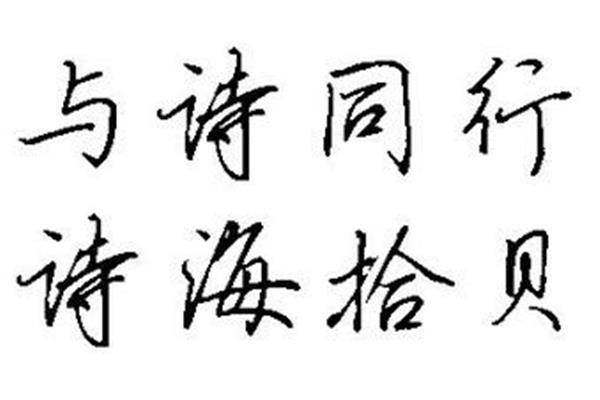 与诗同行
诗海拾贝